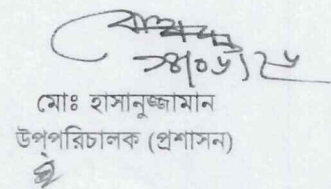 ২৪/০৬/২৫
মোঃ হাসানুজ্জামান
উপপরিচালক (প্রশাসন)